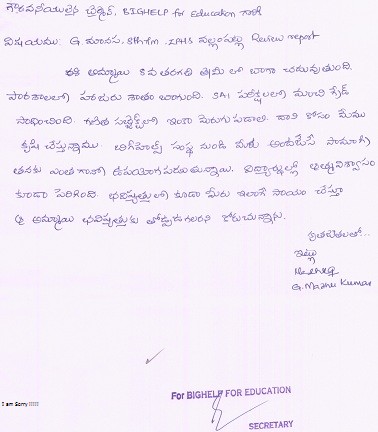 గౌరవనీయులైన చైర్మెన్, BIGHELP for Education గారికి
విషయము: G. మానస, 8th fm, ZPHS పల్లంపట్ల Review report
ఈ అమ్మాయి 8వ తరగతి త్రెమి లో బాగా చదువుతుంది.
పాఠశాలలో హాజరు శాతం బాగుంది. SA1 పరీక్షలలో మంచి గ్రేడ్
సాధించింది. గణిత సబ్జెక్ట్‌లో ఇంకా మెరుగుపడాలి. దాని కోసం మేము
కృషి చేస్తున్నాము. బిగ్‌హెల్ప్ సంస్థ నుండి మీరు అందజేసే సామాగ్రి
తనకు ఎంతగానో ఉపయోగపడుతున్నాయి. విద్యార్థుల్లో ఆత్మవిశ్వాసం
కూడా పెరిగింది. భవిష్యత్తులో కూడా మీరు ఇలాగే సాయం చేస్తూ
ఆ అమ్మాయి భవిష్యత్తుకు తోడ్పడగలరని కోరుచున్నాను.
కృతజ్ఞతలతో...
ఇట్లు
G. Madhu Kumar
For BIGHELP FOR EDUCATION
SECRETARY
I am Sorry !!!!!